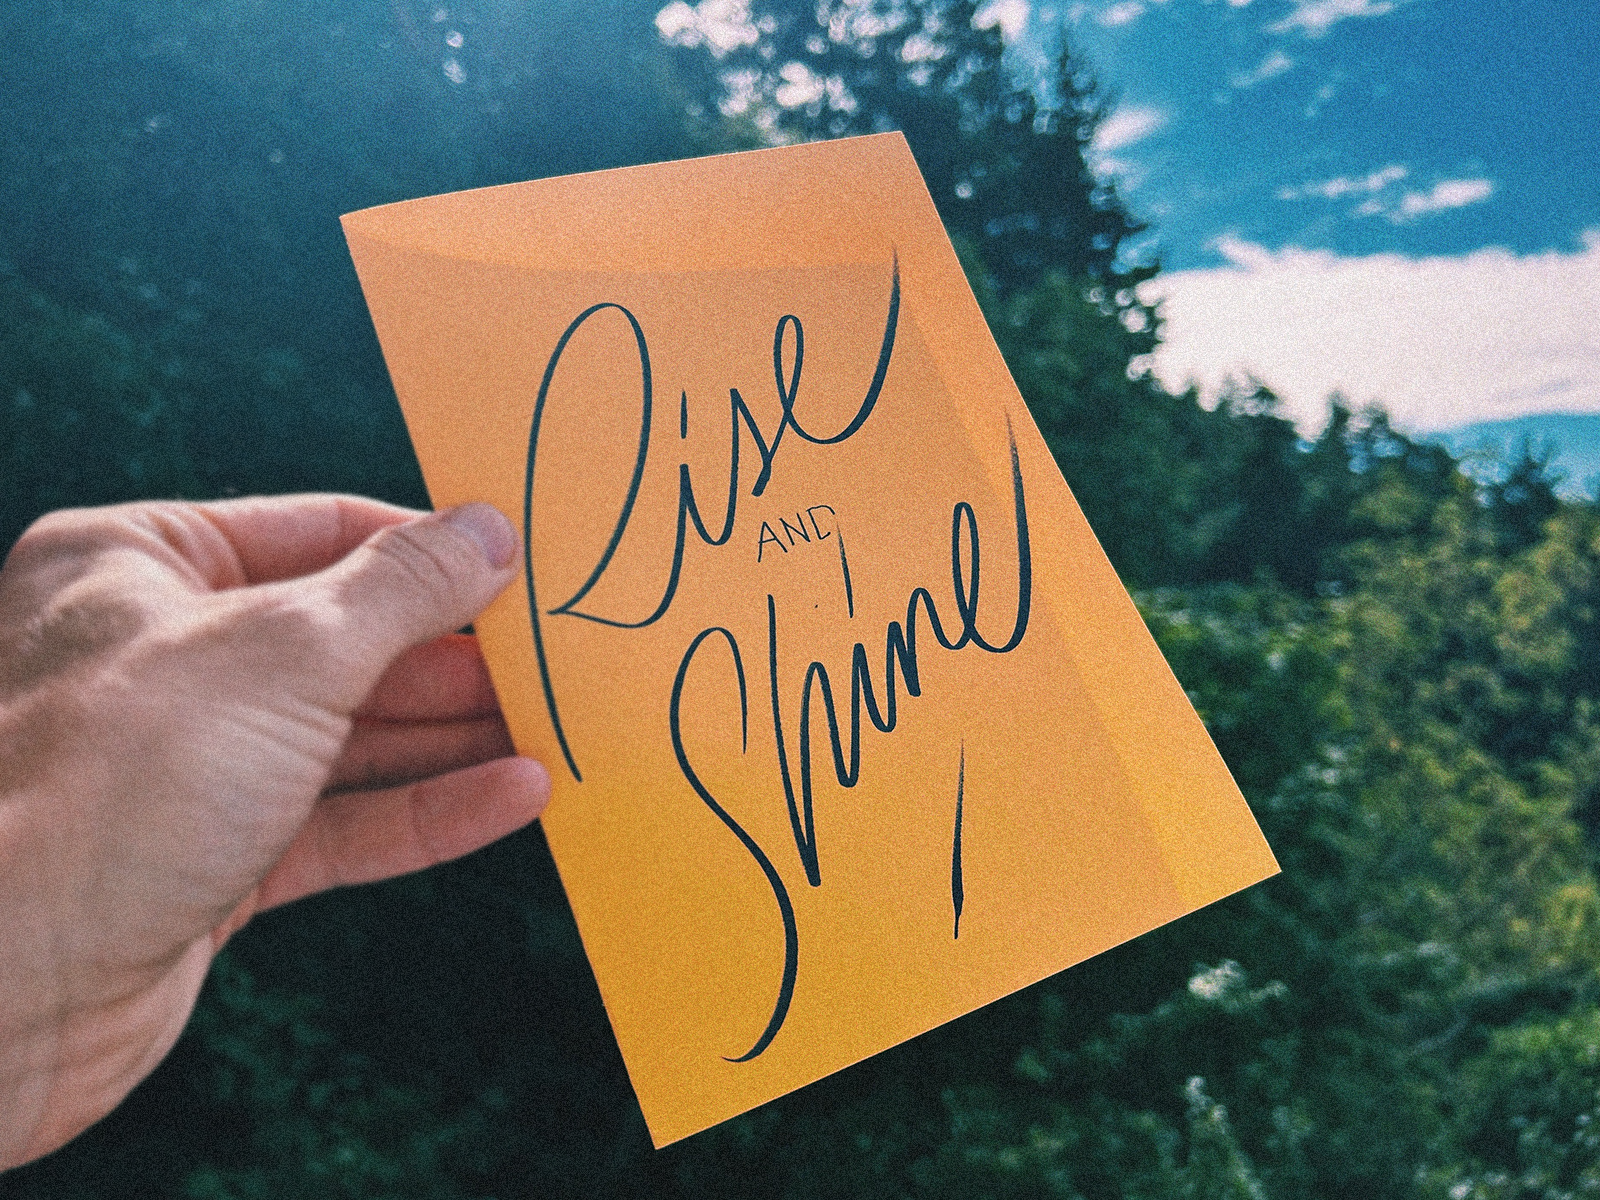 Rise
AND
Shine